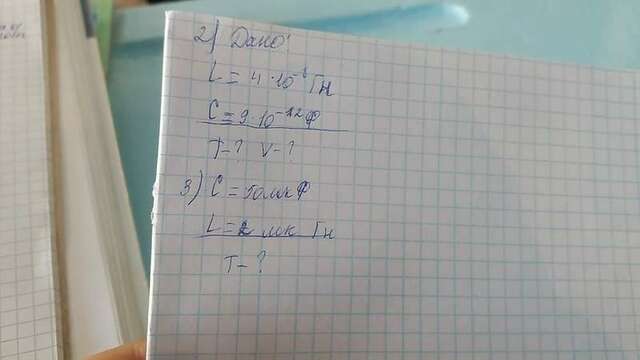 2) Дано:
L = 4·10 Гн
C = 9·10⁻¹²Ф
T-? V-?
3) C = 50мкФ
L = 2 мк Гн
T-?